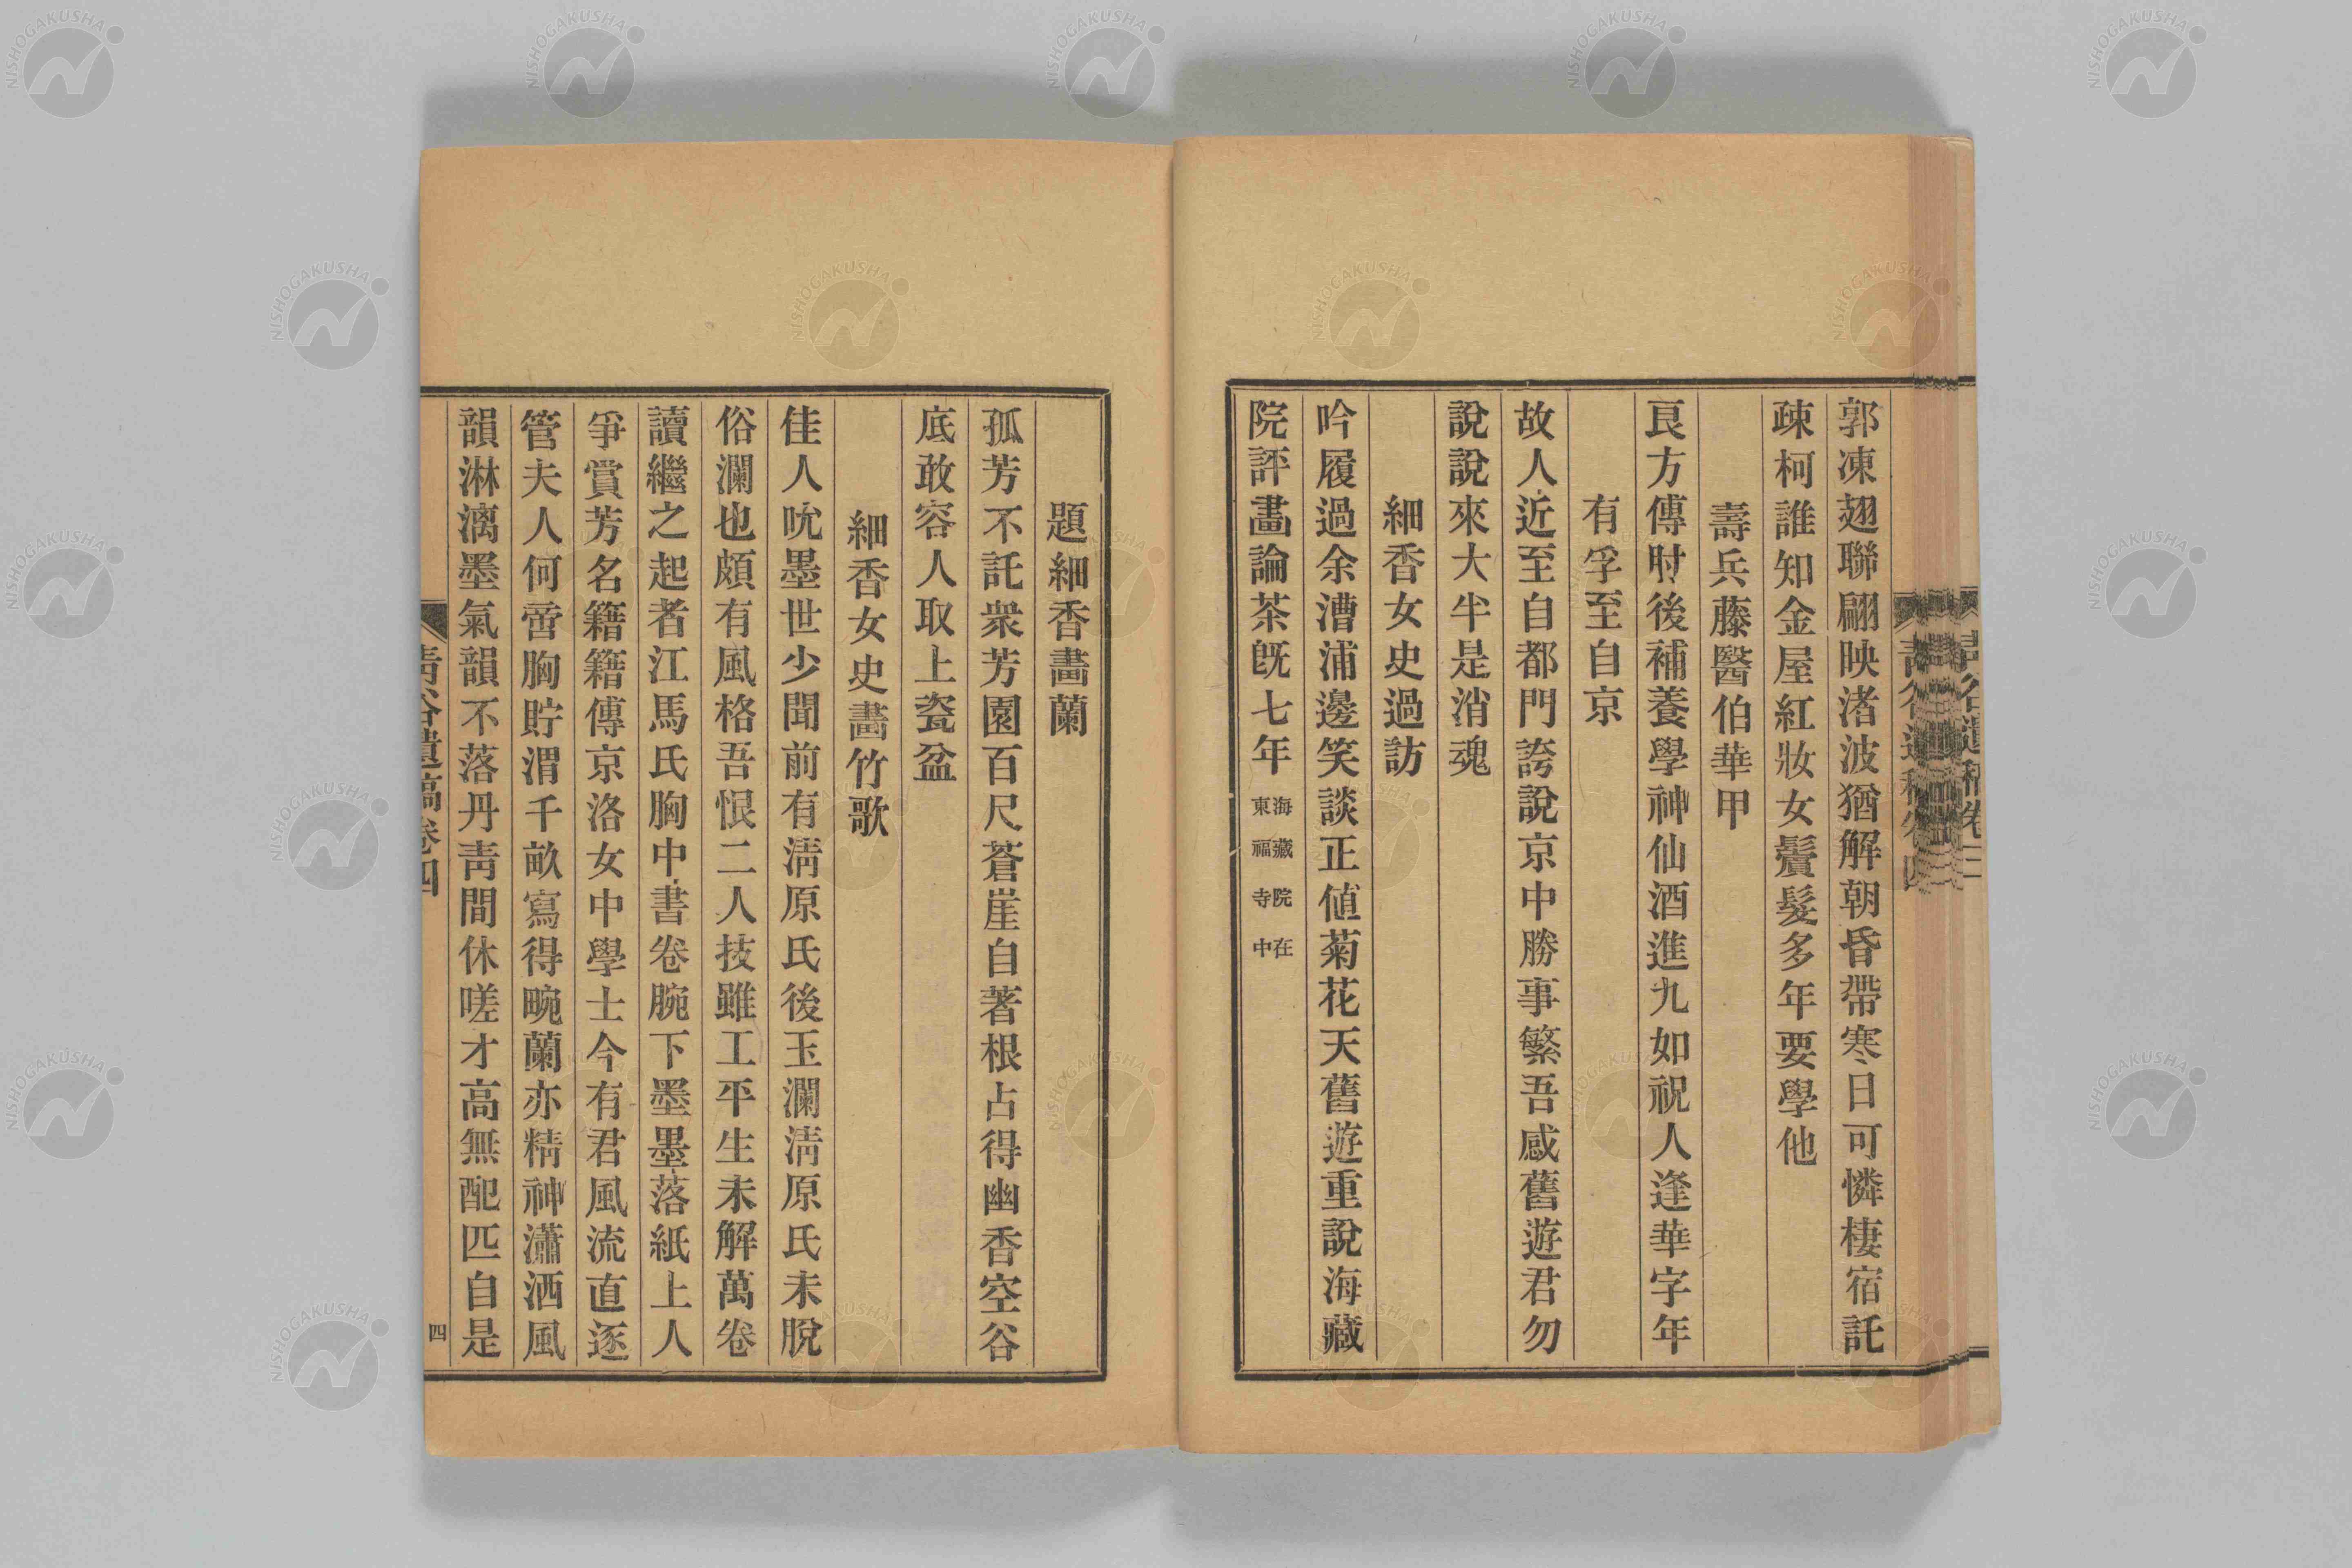 郭凍翅聯翩映渚波猶解朝昏帶寒日可憐棲宿託
疎柯誰知金屋紅妝女鬢髮多年要學他
壽兵藤醫伯華甲
良方傳肘後補養學神仙酒進九如祝人逢華字年
有孚至自京
故人近至自都門誇說京中勝事繁吾感舊遊君勿
說說來大半是消魂
細香女史過訪
吟履過余漕浦邊笑談正値菊花天舊遊重說海藏
院評畫論茶旣七年海藏院在東福寺中
題細香畫蘭
孤芳不託衆芳園百尺蒼崖自著根占得幽香空谷
底敢容人取上瓷盆
細香女史畫竹歌
佳人吮墨世少聞前有淸原氏後玉瀾淸原氏未脫
俗瀾也頗有風格吾恨二人技雖工平生未解萬卷
讀繼之起者江馬氏胸中書卷腕下墨墨落紙上人
爭賞芳名籍籍傳京洛女中學士今有君風流直逐
管夫人何啻胸貯渭千畝寫得畹蘭亦精神瀟洒風
韻淋漓墨氣韻不落丹靑間休嗟才高無配匹自是
靑谷遺稿卷四
四
NISHOGAKUSHA